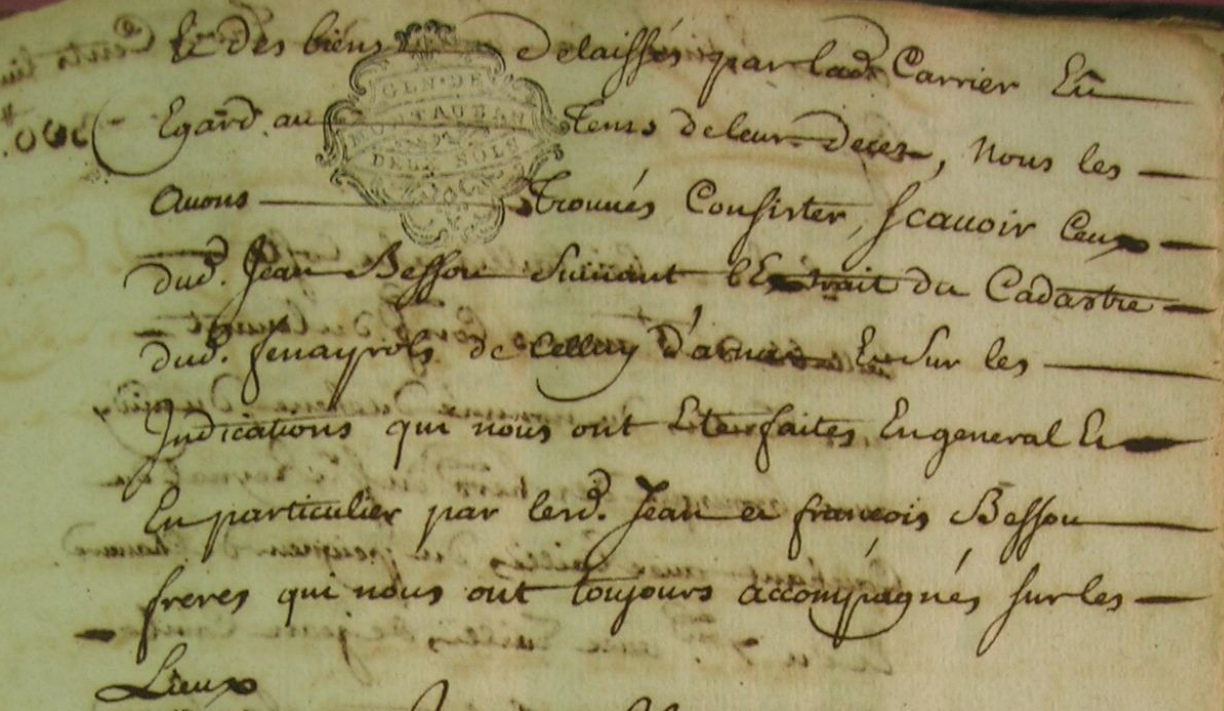 Et des biens Delaissés par lad. Carrier Eû
Egard au Tems de leur Deces, Nous les
GEN. DE
MONTAUBAN
DEUX SOLS
avons Trouvés Consister, scavoir Ceux
dud. Jean Bessou Suivant l'Extrait du Cadastre
dud. fenayrols de Celluy Et Sur les
Indications qui nous ont Eté faites, En general Et
En particulier par lesd. Jean et françois Bessou
freres qui nous ont toujours accompagnés sur les
Lieux